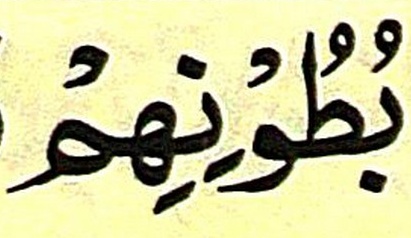 بُطُوْنِهِمْ